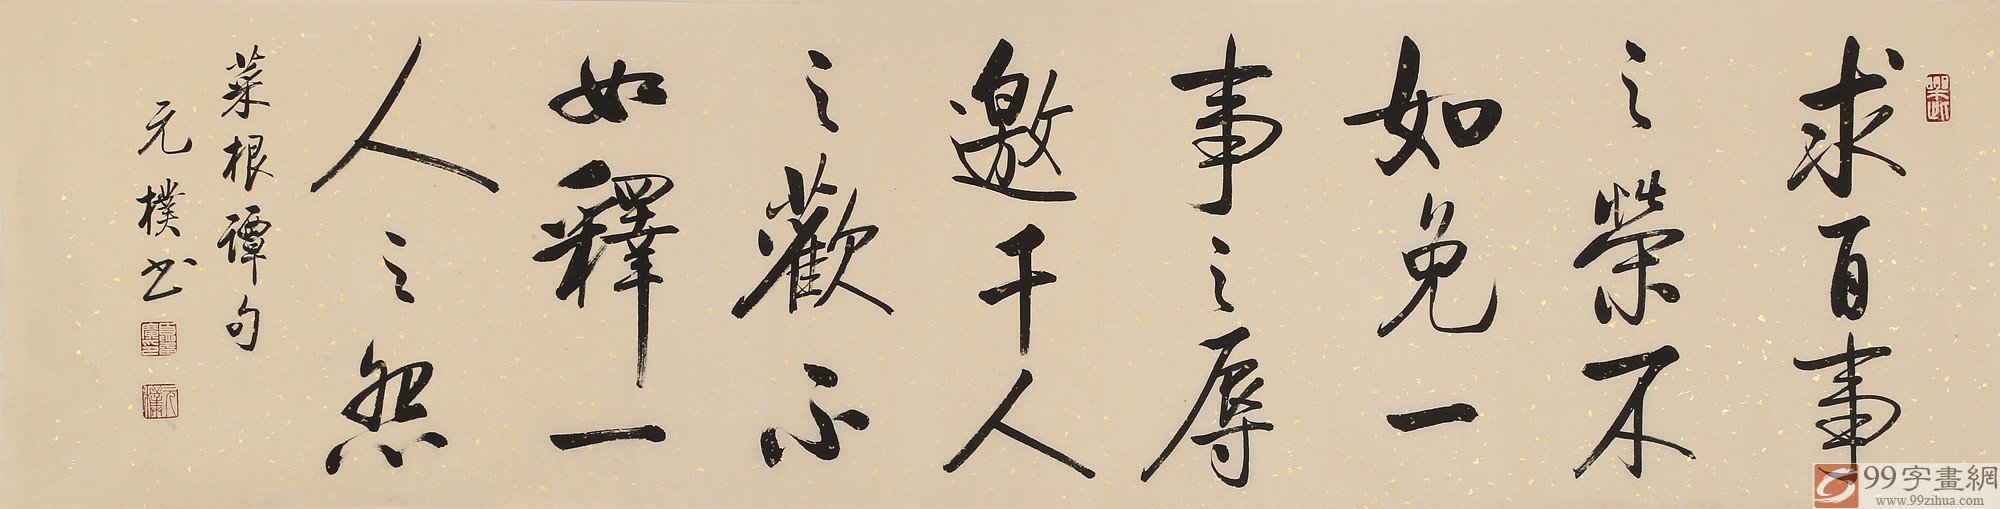 求百事
之榮不
如免一
事之辱
邀千人
之歡不
如釋一
人之怨
菜根譚句
元樸书
99字畫網
www.99zihua.com